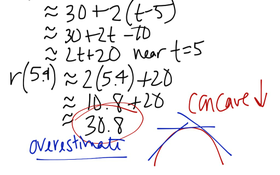 ≈ 30 + 2(t-5)
≈ 30 + 2t - 10
≈ 2t + 20 near t = 5
r(5.4) ≈ 2(5.4) + 20
≈ 10.8 + 20
≈ 30.8
concave ↓
overestimate